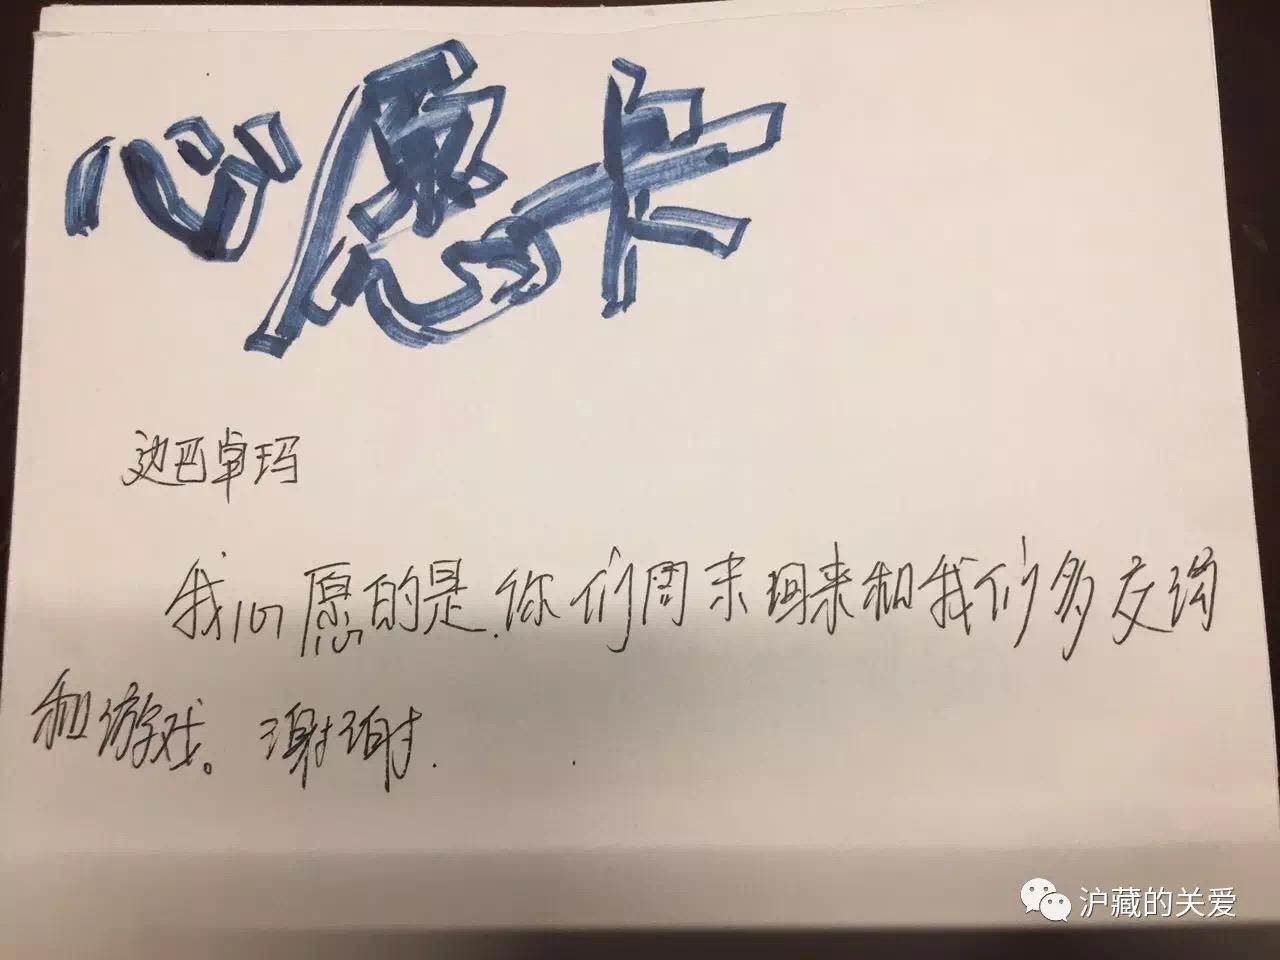 心愿卡
边巴卓玛
我心愿的是.你们周末过来和我们多交沟
和游戏。谢谢.
沪藏的关爱